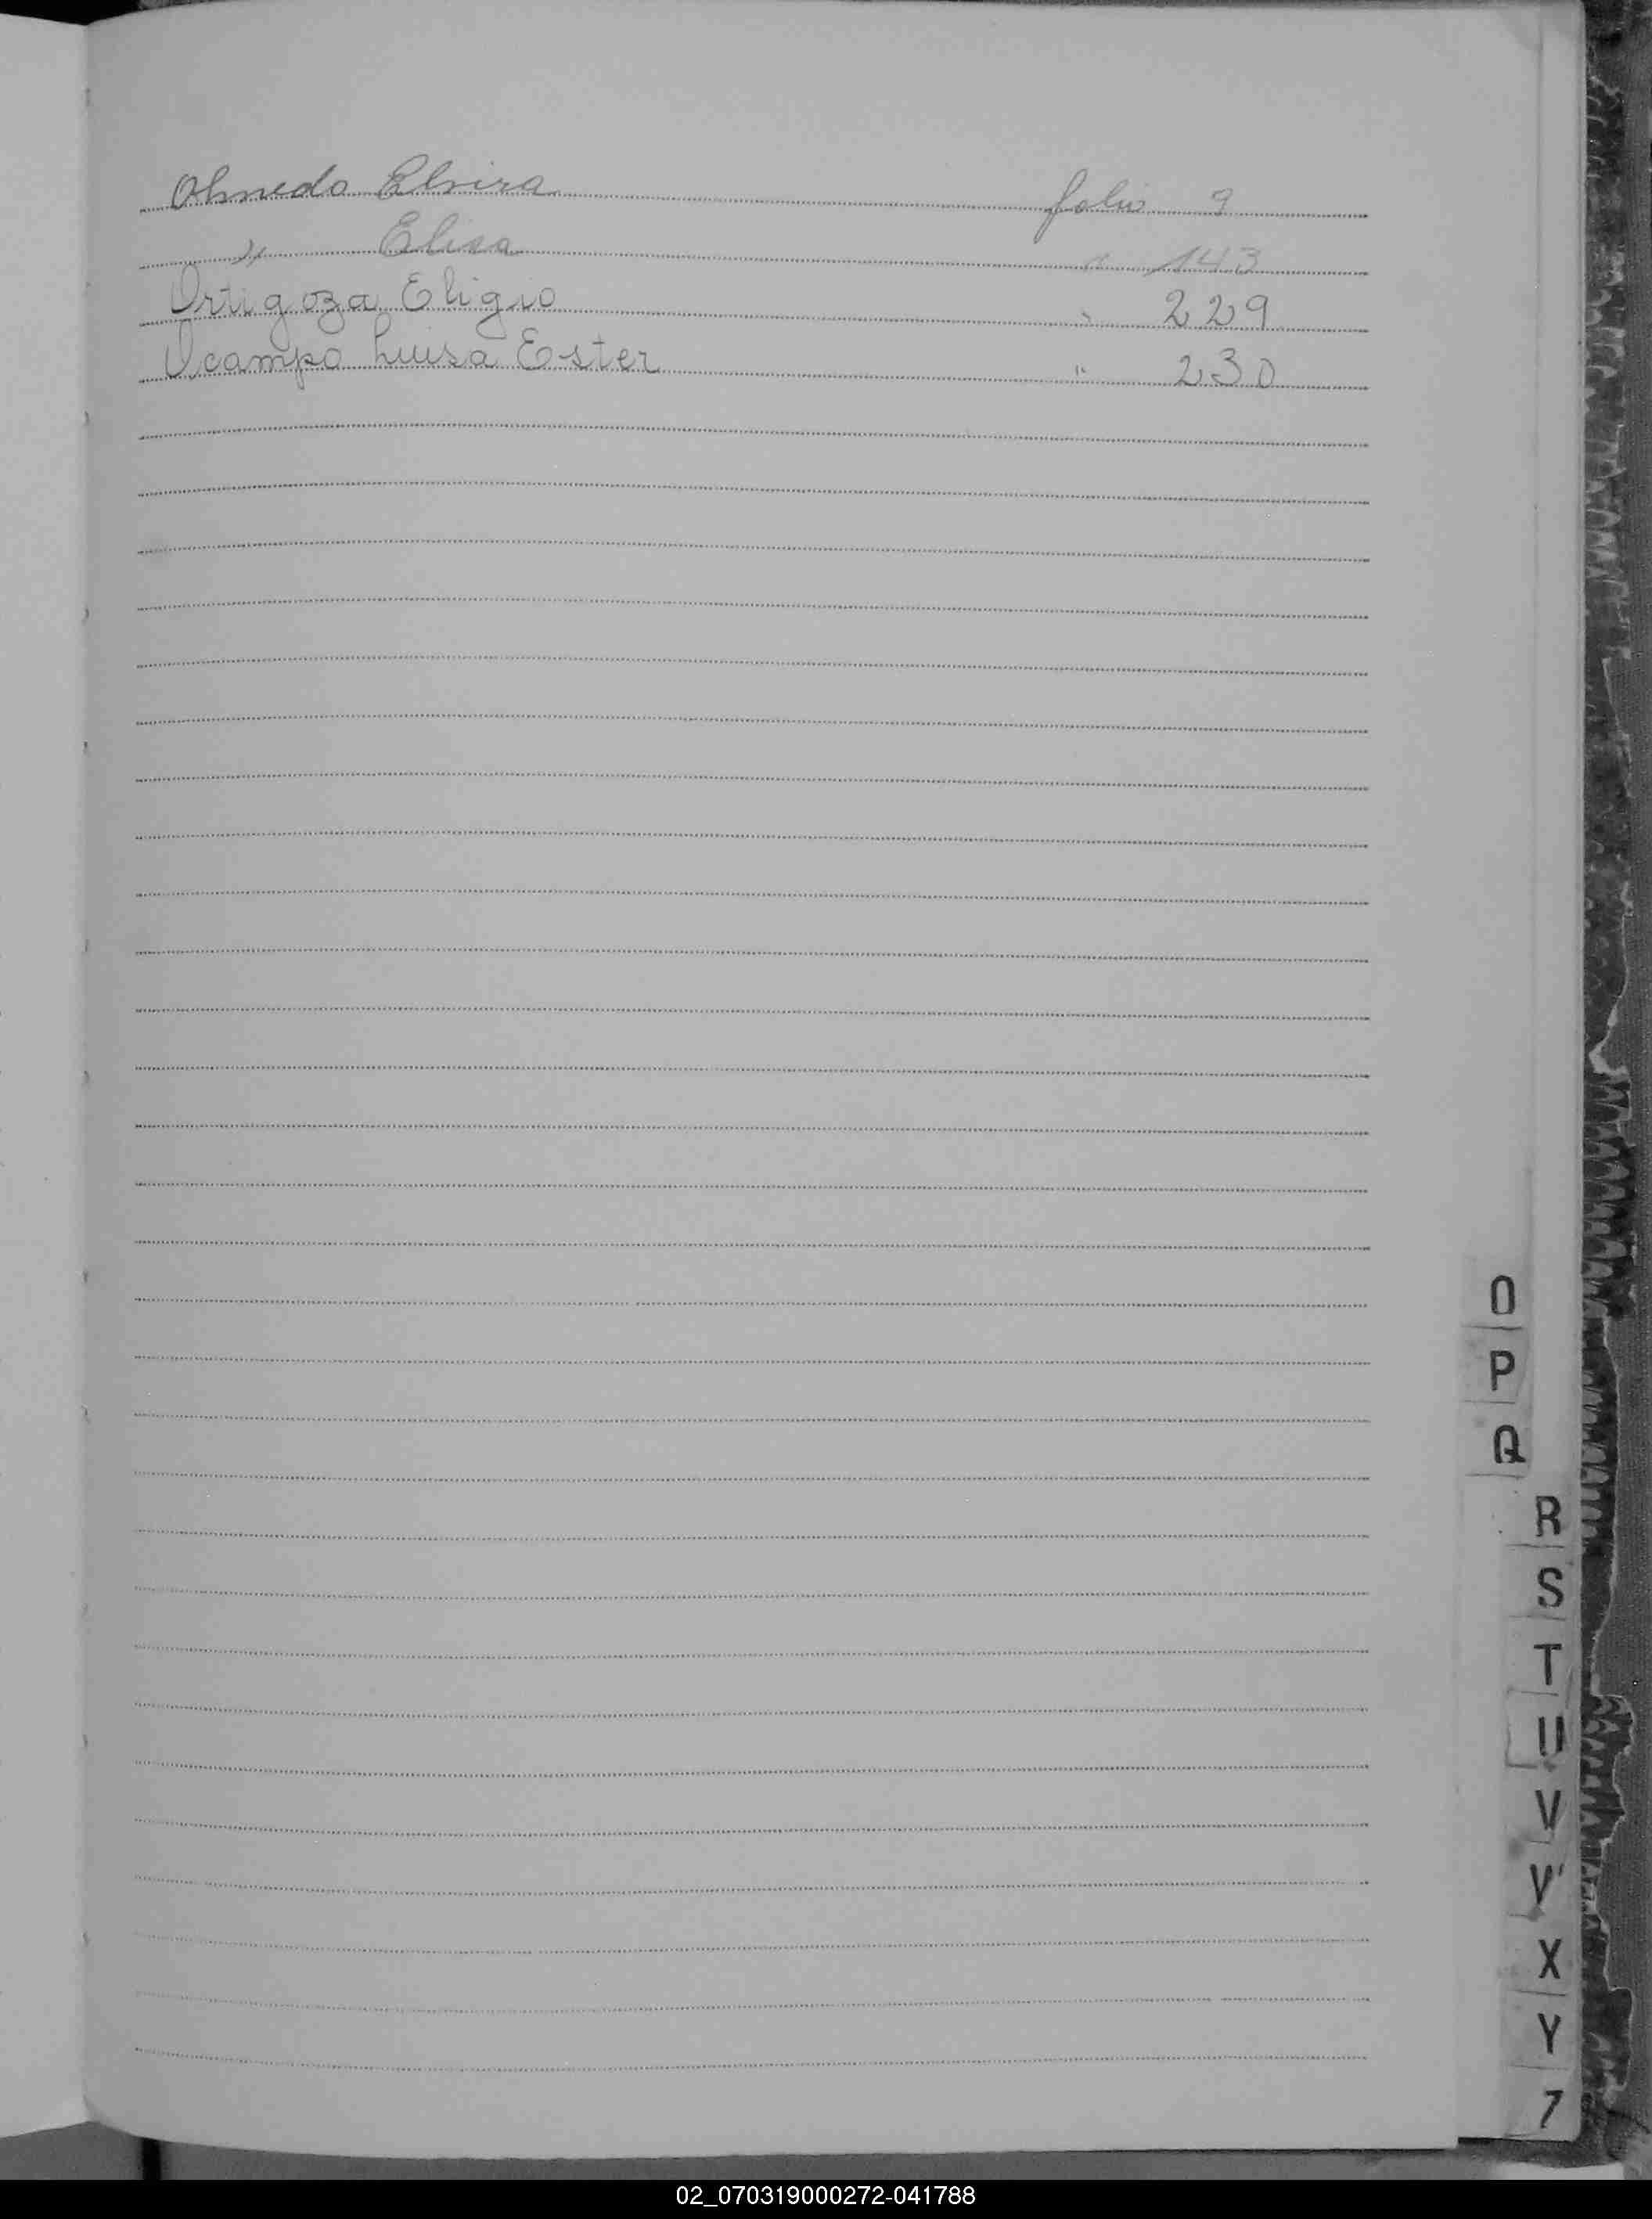 Olmedo Elvira folio 9
" Elisa " 143
Ortigoza Eligio " 229
Ocampo Luisa Ester " 230
O
P
Q
R
S
T
U
V
W
X
Y
Z
02_070319000272-041788